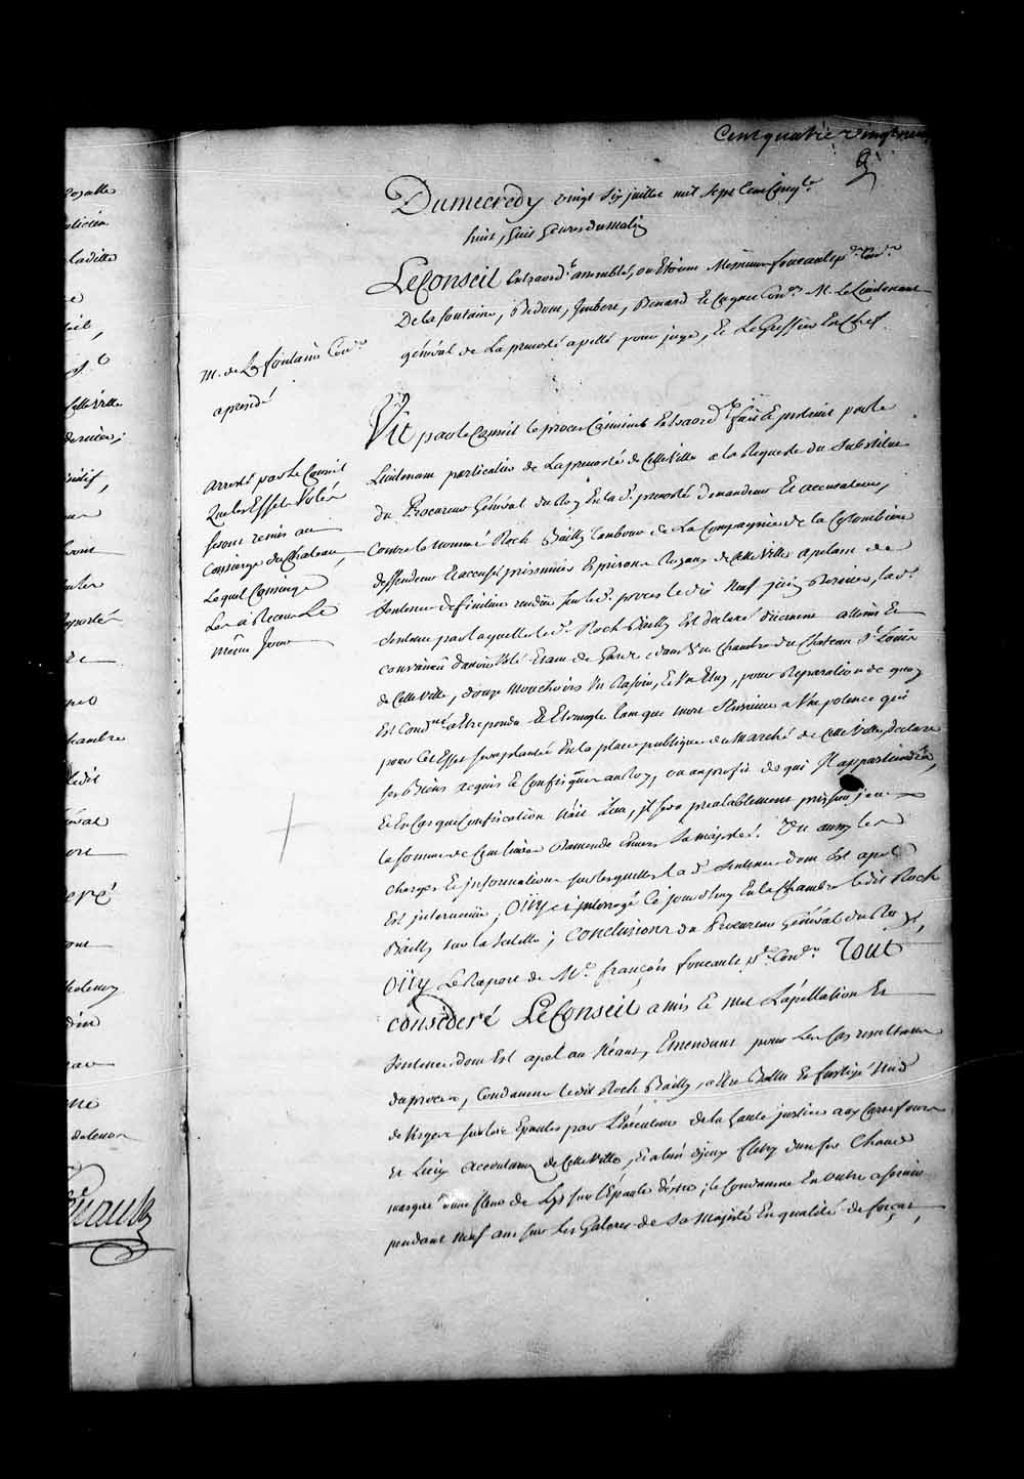 Cent quatre vingt neuf
Du mecredy vingt six juillet mil sept cent Cinq.te
huit, huit heures du matin
Le Conseil Extraord.t assemblé, ou Etoient Messieurs foucault p.r Con.er
De la fontaine, Bedout, Imbert, Benard et Cugnet Con.ers M. le Lieutenant
général de La prevosté apellé pour juge, Et Le Greffier En Chef.
M. de La fontaine Con.er
a presidé
Vû par le Conseil le procès Criminel Extraord.t fait Et instruit par le
Lieutenant particulier de La prevosté de Cette Ville a la Requeste du Substitut
du Procureur Général du Roy En la d. prevosté demandeur Et accusateur,
Contre le nommé Roch Bailly Tambour de La Compagnie de la Colombiere
deffendeur Et accusé prisonnier Es prisons Royaux de Cette Ville apelant de
Sentence definitive rendüe sur led. procès le dix Neuf juin dernier, lad.
Sentence par laquelle led. Roch Bailly Est declaré düement atteint Et
convaincu d'avoir Volé Etant de Garde, dans Une Chambre du Chateau S.t Louis
de Cette Ville, douze Mouchoirs Un Rasoir, Et Un Etuy, pour Reparation de quoy
Est Cond.né a Etre pendu Et Etranglé tant que mort S'ensuive a Une potence qui
pour Cet Effet sera plantée En la place publique du Marché de Cette Ville, declare
ses Biens acquis Et Confisqués au Roy, ou au profit de qui Il appartiendra,
Et En Cas que Confiscation N'ait Lieu, il sera prealablement pris sur iceux
la somme de Cent livres d'amende Envers Sa majesté. Vû aussy les
charges Et informations sur lesquelles la d. Sentence dont Est apel
Est intervenüe; Oüy et interrogé Ce jourdhuy En la Chambre led. Roch
Bailly sur la Sellette; Conclusions du Procureur Général du Roy,
Oüy Le Raport de M.e françois foucault p.r Con.er Tout
consideré Le Conseil a mis Et met L'apellation Et
Sentence dont Est apel au Néant, Emendant pour Les Cas resultans
du procès, Condamne ledit Roch Bailly, a Etre Battu Et fustigé Nud
de Verges sur les Epaules par L'Executeur de la haute justice aux Carrefours
et Lieux accoutumez de Cette Ville, Et a l'un d'jceux fletry d'un fer Chaud
marqué d'une fleur de Lys sur l'Epaule dextre; le Condamne En outre a servir
pendant Neuf ans sur Les Galeres de Sa Majesté En qualité de forçat,
arresté par le Conseil
Que les Effets Volés
seront remis au
Concierge du Chateau,
Lequel Concierge
Les a Receus Le
même Jour